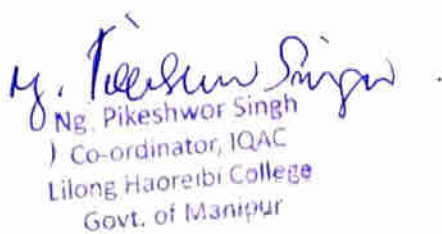 Ng. Pikeshwor Singh
) Co-ordinator, IQAC
Lilong Haoreibi College
Govt. of Manipur